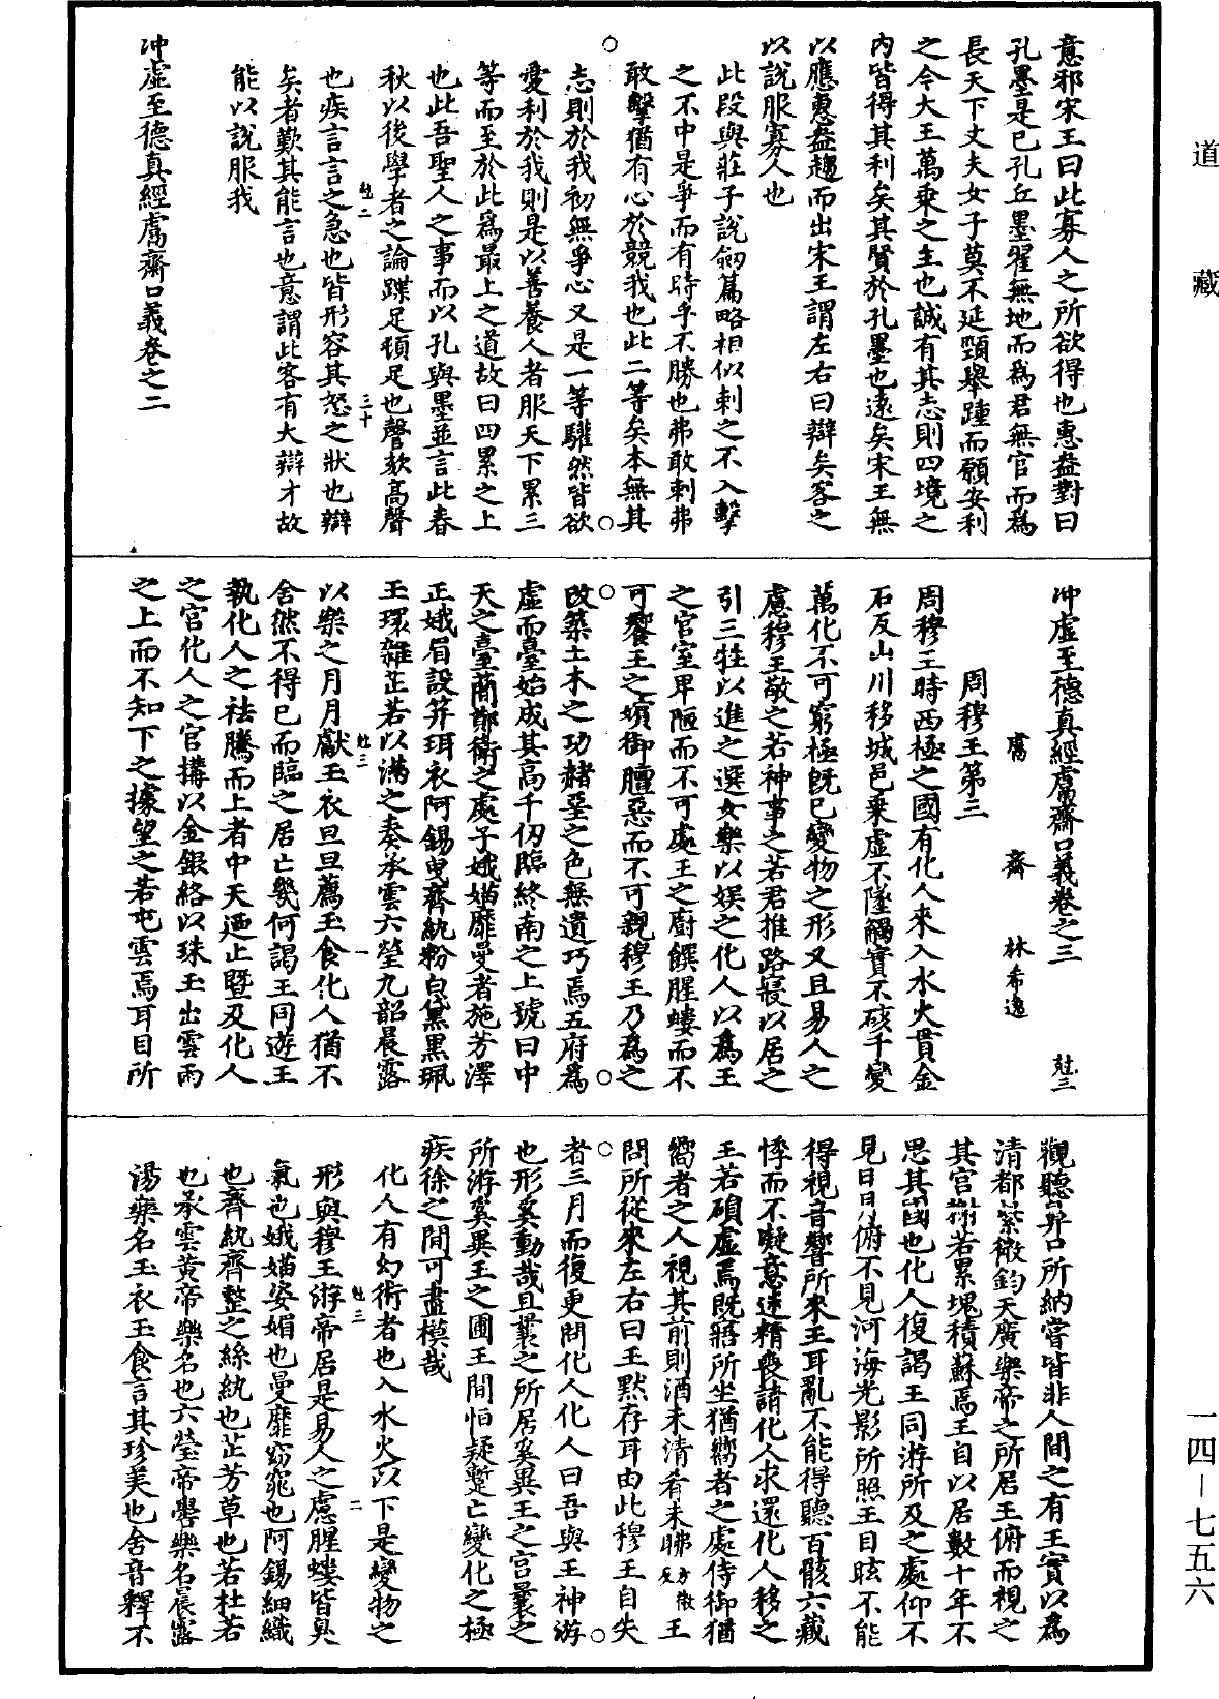 道藏
意邪宋王曰此寡人之所欲得也惠盎對曰
孔墨是已孔丘墨翟無地而為君無官而為
長天下丈夫女子莫不延頸舉踵而願安利
之今大王萬乘之主也誠有其志則四境之
內皆得其利矣其賢於孔墨也遠矣宋王無
以應惠盎趨而出宋王謂左右曰辯矣客之
以說服寡人也
此段與莊子說劒篇略相似刺之不入擊
之不中是爭而有時乎不勝也弗敢刺弗
敢擊猶有心於競我也此二等矣本無其
志則於我初無爭心又是一等驩然皆欲
愛利於我則是以善養人者服天下累三
等而至於此為最上之道故曰四累之上
也此吾聖人之事而以孔與墨並言此春
秋以後學者之論蹀足頓足也謦欬高聲
也疾言言之急也皆形容其怒之狀也辯
矣者歎其能言也意謂此客有大辯才故
能以說服我
冲虛至德真經鬳齋口義卷之二
冲虛至德真經鬳齋口義卷之三
鬳齋林希逸
周穆王第三
周穆王時西極之國有化人來入水火貫金
石反山川移城邑乘虛不墜觸實不硋千變
萬化不可窮極既已變物之形又且易人之
慮穆王敬之若神事之若君推路寢以居之
引三牲以進之選女樂以娛之化人以為王
之宮室卑陋而不可處王之廚饌腥螻而不
可饗王之嬪御膻惡而不可親穆王乃為之
改築土木之功赭堊之色無遺巧焉五府為
虛而臺始成其高千仞臨終南之上號曰中
天之臺簡鄭衛之處子娥媌靡曼者施芳澤
正娥眉設笄珥衣阿錫曳齊紈粉白黛黑珮
玉環雜芷若以滿之奏承雲六瑩九韶晨露
以樂之月月獻玉衣旦旦薦玉食化人猶不
舍然不得已而臨之居亡幾何謁王同遊王
執化人之袪騰而上者中天迺止暨及化人
之宮化人之宮構以金銀絡以珠玉出雲雨
之上而不知下之據望之若屯雲焉耳目所
觀聽鼻口所納嘗皆非人間之有王實以為
清都紫微鈞天廣樂帝之所居王俯而視之
其宮榭若累塊積蘇焉王自以居數十年不
思其國也化人復謁王同游所及之處仰不
見日月俯不見河海光影所照王目眩不能
得視音響所來王耳亂不能得聽百骸六藏
悸而不凝意迷精喪請化人求還化人移之
王若磒虛焉既寤所坐猶嚮者之處侍御猶
嚮者之人視其前則酒未清肴未昲方微反王
問所從來左右曰王默存耳由此穆王自失
者三月而復更問化人化人曰吾與王神游
也形奚動哉且曩之所居奚異王之宮曩之
所游奚異王之圃王間恒疑蹔亡變化之極
疾徐之間可盡模哉
化人有幻術者也入水火以下是變物之
形與穆王游帝居是易人之慮腥螻皆臭
氣也娥媌姿媚也曼靡窈窕也阿錫細織
也齊紈齊整之絲紈也芷芳草也若杜若
也承雲黃帝樂名也六瑩帝嚳樂名晨露
湯樂名玉衣玉食言其珍美也舍音釋不
一四—七五六